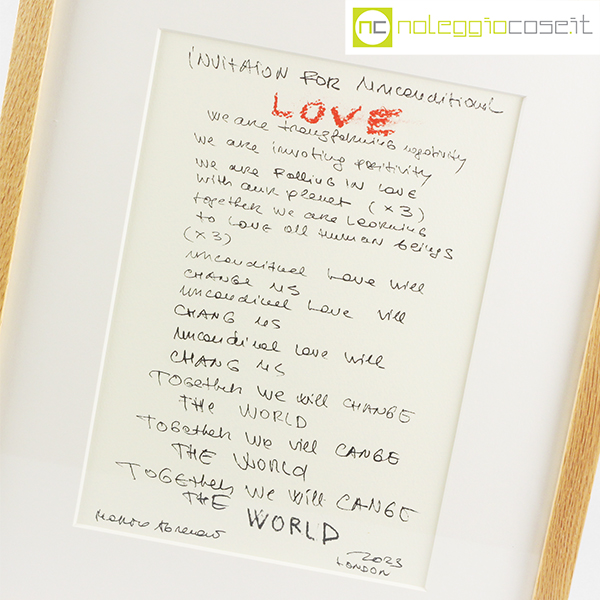 nc noleggiocose.it
INVITAION FOR Unconditional
LOVE
we are transforming negativity
we are invoting positivity
we are FALLING IN LOVE
with our planet (x3)
together we are LEARNING
to LOVE all human beings
(x3)
unconditinal Love will
CHANGE US
unconditnal Love will
CHANG US
unconditnal Love will
CHANG US
TOGether we will CHANGE
THE WORLD
TOGether we will CANGE
THE WORLD
TOGether we will CANGE
THE WORLD
2023
LONDON